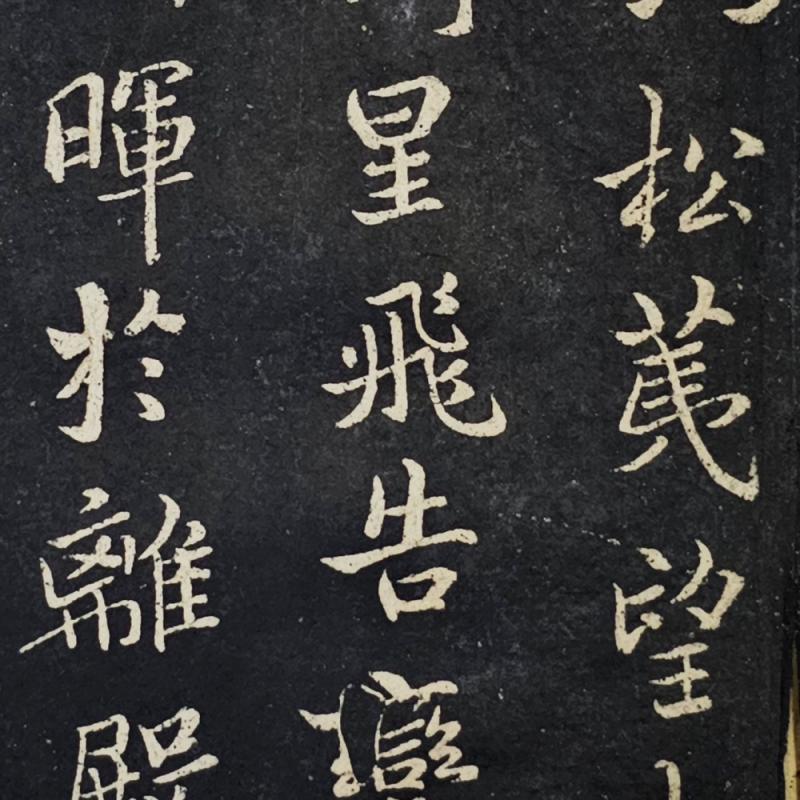 松望
星飛告
暉於離殿